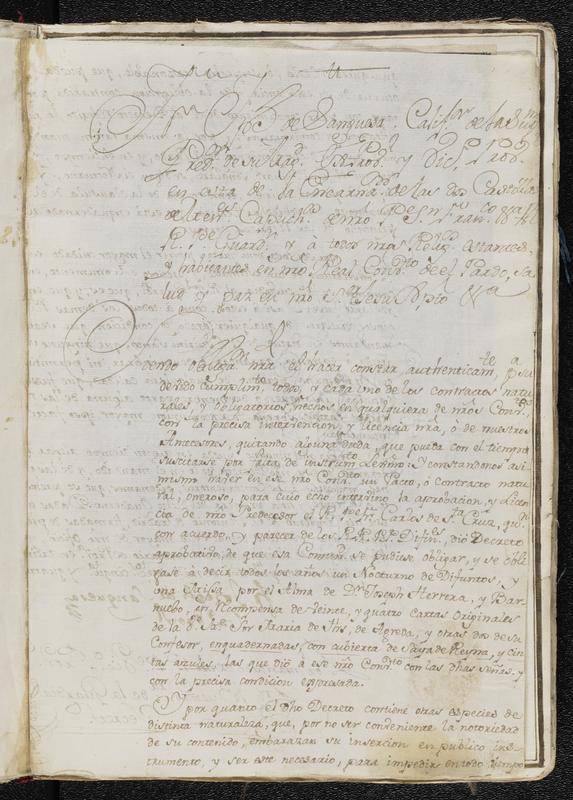 Fr. Joseph de Sanguesa, Calif.or de la Sup.ma
Pred.or de su Mag.d
en esta de la Encarn.on de las dos Castillas
de Fr.es Menores Capuch.s de nro P.e S.n Fran.co
R. P.e Guard.n y à todos nros Relig.s estantes,
y habitantes en nro Real Conv.to de el Pardo, Sa
lud y paz en nro S.or Jesu Xpto &.a
Siendo obligaz.on nra el hacer constar authenticam.te, p.a su
devido cumplim.to, todos, y cada uno de los contractos natu
rales, y obligatorios, hechos en qualquiera de nros Conv.tos
con la precisa intervencion, y licencia nra, ò de nuestros
Antecesores, quitando alguna duda, que pueda con el tiempo
suscitarse por falta de instrum.to Y constandonos asi
mismo haver en ese nro Conv.to un Pacto, ò contracto natu
ral, oneroso, para cuio efecto intervino la aprobacion, y licen
cia de nro Predecesor el R. P.e Fr. Carlos de S.ta Cruz, q.n
con acuerdo, y parecer de los RR. PP. Difin.s dio Decreto
aprobativo, de que esa Comun.d se pudiese obligar, y se obli
gase à decir todos los años un Nocturno de Difuntos, y
una Missa por el Alma de D.n Joseph Herrera, y Bar
nuebo, en recompensa de veinte, y quatro cartas originales
de la V. M.e Sor Maria de Jhs. de Agreda, y otras dos de su
Confesor, enquadernadas, con cubierta de Saya de Reyna, y cin
tas azules, las que dió à ese nro Conv.to con las dhas señas, y
con la precisa condicion expresada.
Y por quanto el dho Decreto contiene otras especies de
distinta naturaleza, que, por no ser conveniente la notoriedad
de su contenido, embarazan su insercion en publico ins
trumento, y ser este necesario, para impedir en todo tiempo